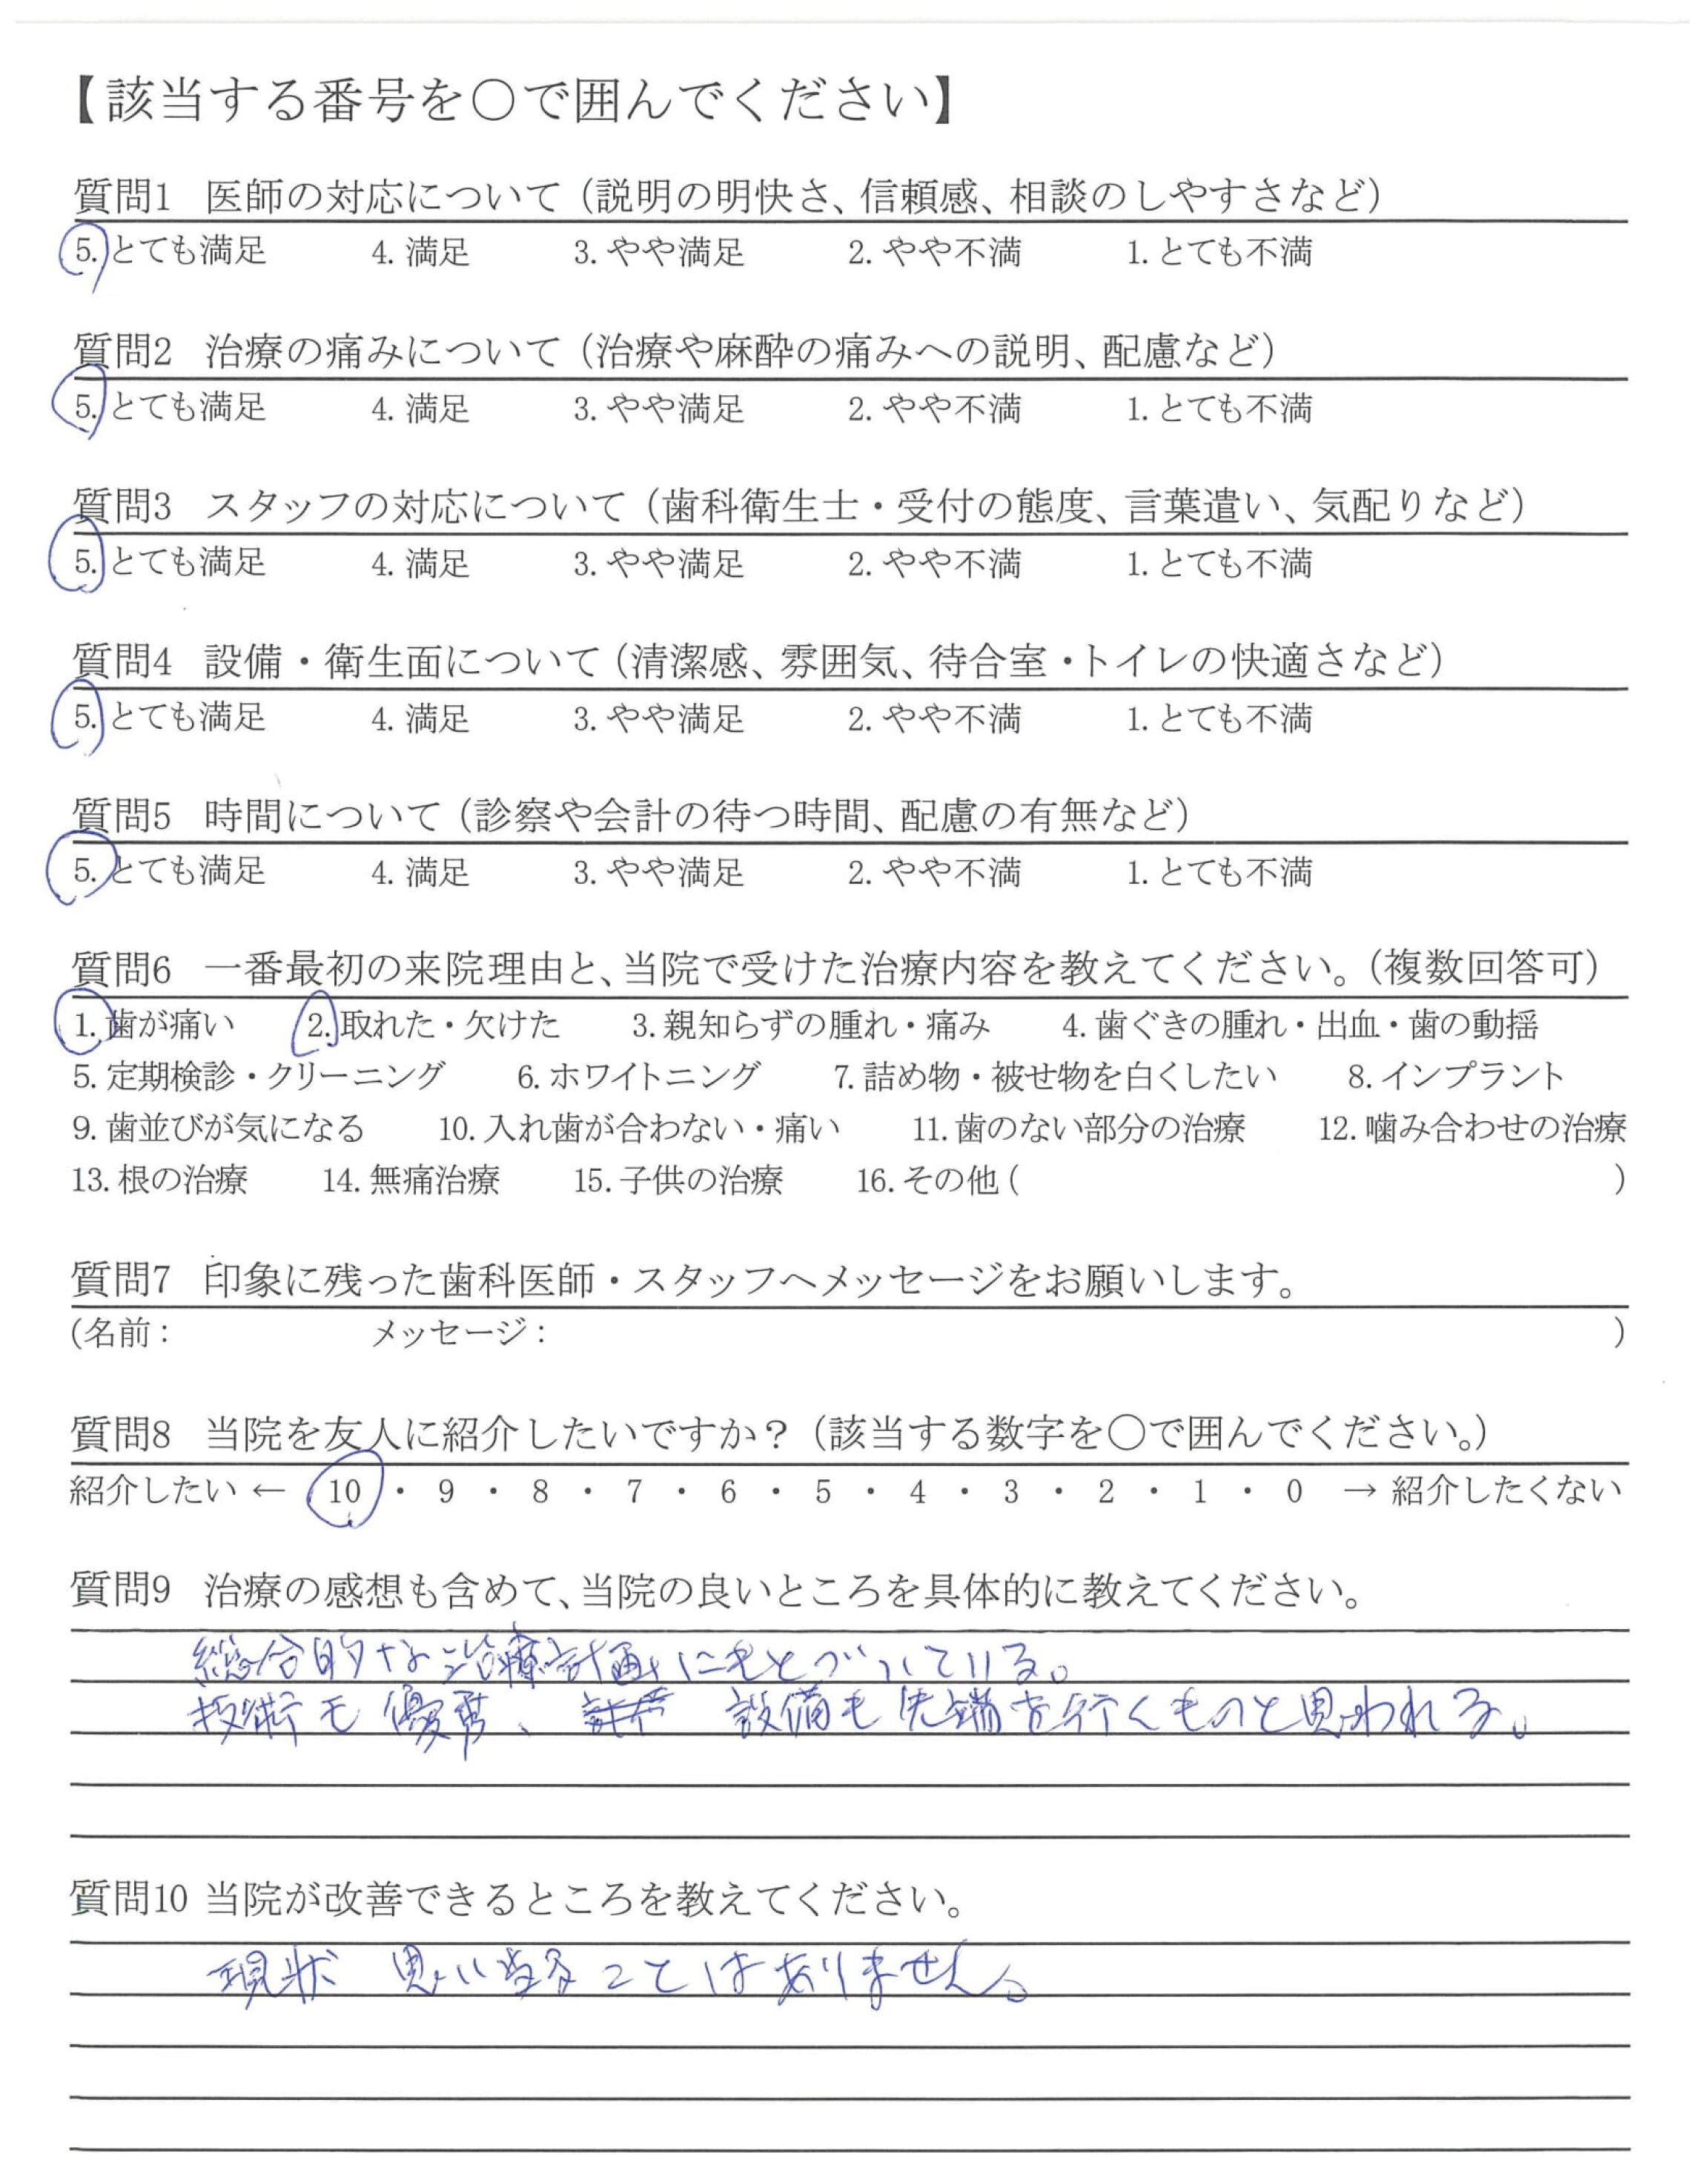 【該当する番号を〇で囲んでください】
質問1 医師の対応について（説明の明快さ、信頼感、相談のしやすさなど）
5. とても満足 4. 満足 3. やや満足 2. やや不満 1. とても不満
質問2 治療の痛みについて（治療や麻酔の痛みへの説明、配慮など）
5. とても満足 4. 満足 3. やや満足 2. やや不満 1. とても不満
質問3 スタッフの対応について（歯科衛生士・受付の態度、言葉遣い、気配りなど）
5. とても満足 4. 満足 3. やや満足 2. やや不満 1. とても不満
質問4 設備・衛生面について（清潔感、雰囲気、待合室・トイレの快適さなど）
5. とても満足 4. 満足 3. やや満足 2. やや不満 1. とても不満
質問5 時間について（診察や会計の待つ時間、配慮の有無など）
5. とても満足 4. 満足 3. やや満足 2. やや不満 1. とても不満
質問6 一番最初の来院理由と、当院で受けた治療内容を教えてください。（複数回答可）
1. 歯が痛い 2. 取れた・欠けた 3. 親知らずの腫れ・痛み 4. 歯ぐきの腫れ・出血・歯の動揺
5. 定期検診・クリーニング 6. ホワイトニング 7. 詰め物・被せ物を白くしたい 8. インプラント
9. 歯並びが気になる 10. 入れ歯が合わない・痛い 11. 歯のない部分の治療 12. 噛み合わせの治療
13. 根の治療 14. 無痛治療 15. 子供の治療 16. その他 ( )
質問7 印象に残った歯科医師・スタッフへメッセージをお願いします。
(名前： メッセージ： )
質問8 当院を友人に紹介したいですか？（該当する数字を〇で囲んでください。）
紹介したい ← 10 ・ 9 ・ 8 ・ 7 ・ 6 ・ 5 ・ 4 ・ 3 ・ 2 ・ 1 ・ 0 → 紹介したくない
質問9 治療の感想も含めて、当院の良いところを具体的に教えてください。
総合的な治療計画にもとづいている。
技術も優秀、設備も先端を行くものと思われる。
質問10 当院が改善できるところを教えてください。
現状 思い当ることはありません。